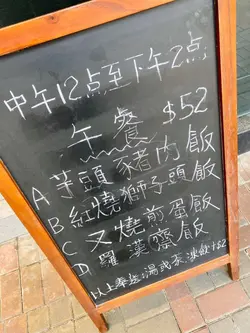 中午12点至下午2点
午餐 $52
A 芋頭豬肉飯
B 紅燒獅子頭飯
C 叉燒煎蛋飯
D 羅漢齋飯
以上奉送:湯或茶,凍飲+$2